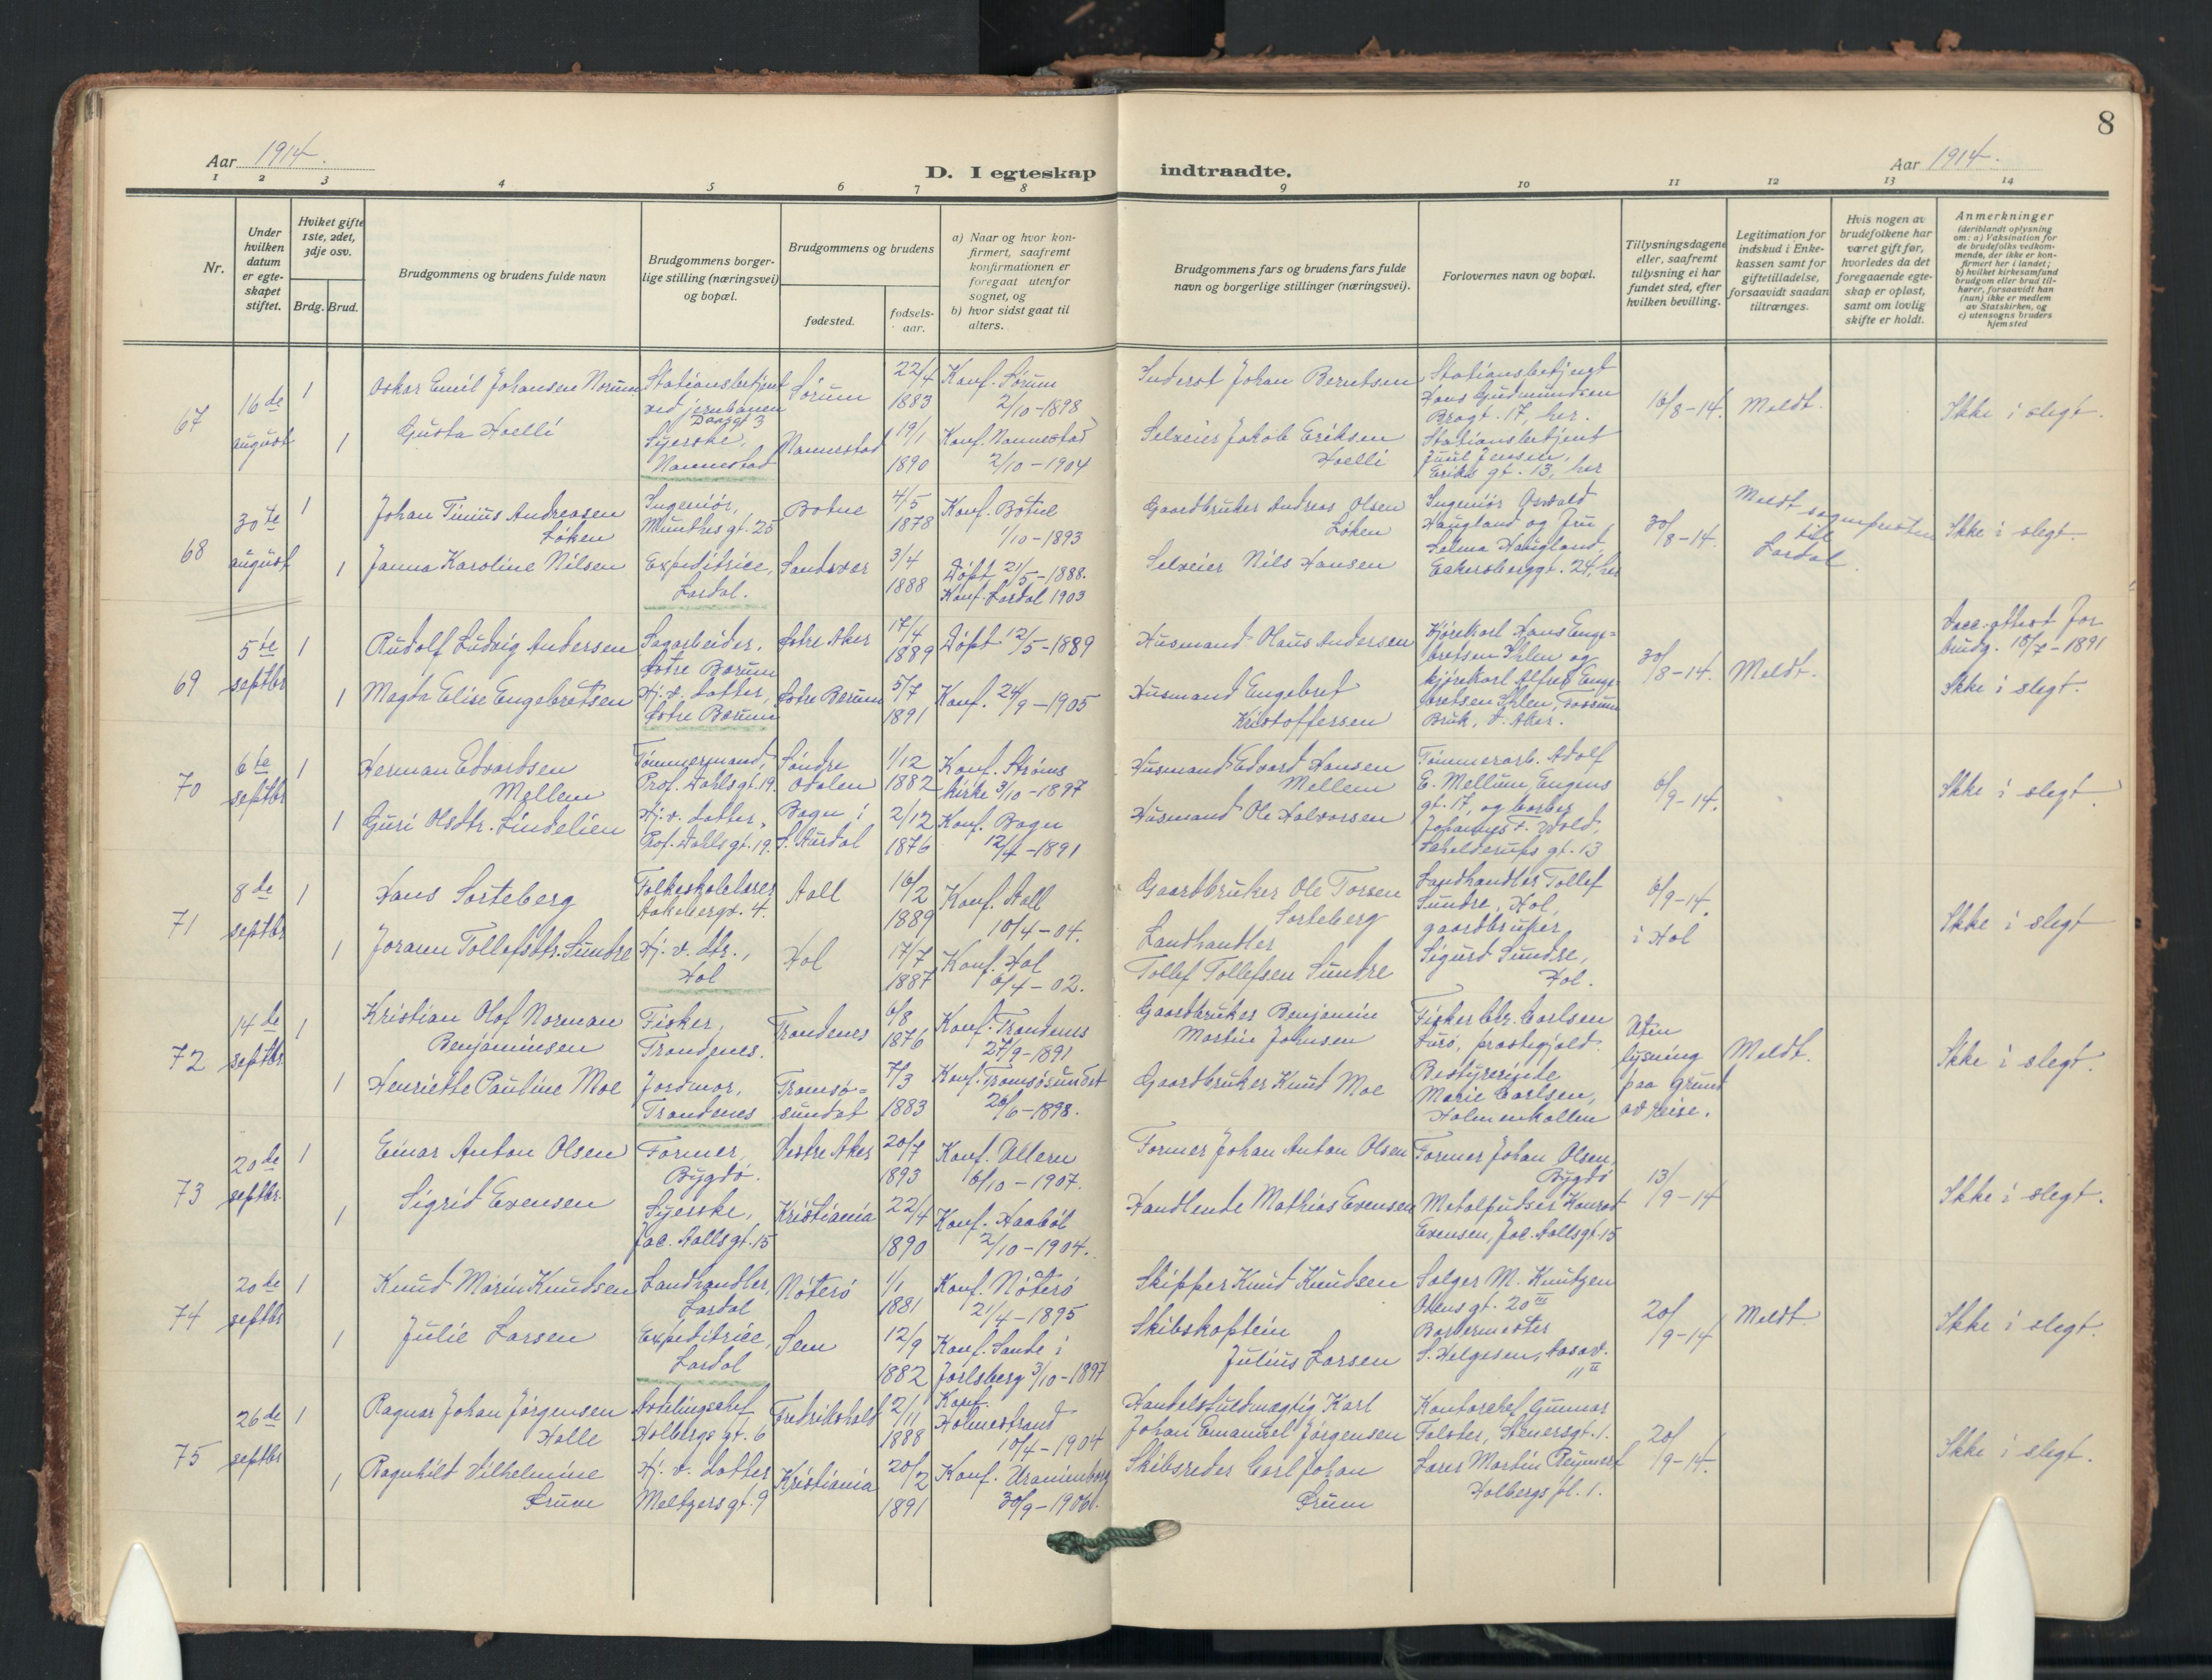 8
Aar 1914.
D. I egteskap indtraadte.
Aar 1914.
1 2 3 4 5 6 7 8 9 10 11 12 13 14
Nr.
Under hvilken datum er egteskapet stiftet.
Hviket gifte 1ste, 2det, 3dje osv.
Brdg. Brud.
Brudgommens og brudens fulde navn
Brudgommens borgerlige stilling (næringsvei) og bopæl.
Brudgommens og brudens
fødested.
fødselsaar.
a) Naar og hvor konfirmert, saafremt konfirmationen er foregaat utenfor sognet, og
b) hvor sidst gaat til alters.
Brudgommens fars og brudens fars fulde navn og borgerlige stillinger (næringsvei).
Forlovernes navn og bopæl.
Tillysningsdagene eller, saafremt tillysning ei har fundet sted, efter hvilken bevilling.
Legitimation for indskud i Enkekassen samt for giftetilladelse, forsaavidt saadan tiltrænges.
Hvis nogen av brudefolkene har været gift før, hvorledes da det foregaaende egteskap er opløst, samt om lovlig skifte er holdt.
Anmerkninger (deriblandt oplysning om: a) Vaksination for de brudefolks vedkommende, der ikke er konfirmert her i landet; b) hvilket kirkesamfund brudgom eller brud tilhører, forsaavidt han (hun) ikke er medlem av Statskirken, og c) utensogns bruders hjemsted
67
16de august
1
Oskar Emil Johansen Norum
Stationsbetjent ved jernbanen
Sørum
22/4 1883
Konf. Sørum 2/10-1898
Inderst Johan Berntsen
Stationsbetjent Hans Gudmundsen Bragt. 17, her.
16/8-14.
Meldt.
Ikke i slegt.
1
Gusta Hoelli
Syerske, Nannestad
Nannestad
19/1 1890
Konf. Nannestad 2/10-1904
Selveier Jakob Eriksen Hoelli
Stationsbetjent Juul Jensen, Eriks gt. 13, her
68
30te august
1
Johan Tinius Andreasen Løken
Ingeniør, Munthes gt. 25
Botne
4/5 1878
Konf. Botne 1/10-1893
Gaardbruker Andreas Olsen Løken
Ingeniør Oswald Haugland og Fru Selma Haugland, Eakersberggt. 24, her
30/8-14.
Meldt sognepresten til Lardal.
Ikke i slegt.
1
Janna Karoline Nilsen
Expeditrice, Lardal.
Sandsvær
3/4 1888
Døpt 21/5-1888. Konf. Lardal 1903
Selveier Nils Hansen
69
5te septbr
1
Rudolf Ludvig Andersen
Sagarbeider, Østre Bærum
Østre Aker
17/4 1889
Døpt 12/5-1889
Husmand Olaus Andersen
Kjørekarl Hans Engebretsen Ihlen og kjørekarl Alfred Engebretsen Ihlen, Fossum Bruk, V. Aker.
30/8-14.
Meldt.
Vacc.attest for brudg. 10/7-1891
Ikke i slegt.
1
Magda Elise Engebretsen
Hj. v. datter, Østre Bærum
Østre Bærum
5/7 1891
Konf. 24/9-1905
Husmand Engebret Kristoffersen
70
6te septbr
1
Herman Edvardsen Mellem
Tømmermand, Prof. Dahlsgt. 19.
Søndre Odalen
1/12 1882
Konf. Strøms kirke 3/10-1897
Husmand Edvard Hansen Mellem
Tømmerarb. Adolf E. Mellum, Eugens gt. 17, og
Johannes F. Wold, Schelderups gt. 13
6/9-14.
Ikke i slegt.
1
Guri Olsdtr. Lindelien
Hj. v. datter, Prof. Dahlsgt. 19.
Bagn i S. Aurdal
2/12 1876
Konf. Bagn 12/4-1891
Husmand Ole Halvorsen
71
8de septbr
1
Hans Sorteberg
Folkeskolelærer Aakebergv. 4.
Aall
16/2 1889
Konf. Aall 10/4-04.
Gaardbruker Ole Torsen Sorteberg
Landhandler Tollef Sundre, Hol, gaardbruker Sigurd Sundre, Hol.
6/9-14. i Hol
Ikke i slegt
1
Jorann Tollefsdtr. Sundre
Hj. v. dtr., Hol
Hol
17/7 1887
Konf. Hol 6/4-02.
Landhandler Tollef Tollefsen Sundre
72
14de septbr
1
Kristian Olaf Norman Benjaminsen
Fisker, Trondenes.
Trondenes
6/8 1876
Konf. Trondenes 27/9-1891
Gaardbruker Benjamin Martin Johnsen
Fisker Chr. Carlsen
Bestyrerinde Marie Carlsen, Holmenkollen
Uten lysning paa grund av reise.
Meldt.
Ikke i slegt.
1
Henriette Pauline Moe
Jordmor, Trondenes
Tromsøsundet
7/3 1883
Konf. Tromsøsundet 26/6-1898.
Gaardbruker Knud Moe
73
20de septbr.
1
Einar Anton Olsen
Former, Bygdø.
Vestre Aker
20/7 1893
Konf. Ullern 6/10-1907.
Former Johan Anton Olsen
Former Johan Olsen, Bygdø
13/9-14
Ikke i slegt.
1
Sigrid Evensen
Syerske, Jac. Aallsgt. 15
Kristiania
22/4 1890
Konf. Haabøl 2/10-1904.
Handlende Mathias Evensen
Metalpudser Konrad Evensen, Jac. Aallsgt. 15
74
20de septbr
1
Knud Marin Knudsen
Landhandler, Lardal
Nøterø
1/1 1881
Konf. Nøterø 21/4-1895
Skipper Knud Knudsen
Selger M. Knutzen Odens gt. 20 III
Barbermester S. Helgesen, Aasav. 11 II
20/9-14
Meldt.
Ikke i slegt.
1
Julie Larsen
Expeditrice, Lardal
Sem
12/9 1882
Konf. Sande i Jarlsberg 3/10-1897
Skibskaptein Julius Larsen
75
26de septbr
1
Ragnar Johan Jørgensen Holle
Avdelingschef Holbergs gt. 6
Fredrikshald
2/11 1888
Konf. Holmestrand 10/4-1904
Handelsfuldmægtig Karl Johan Emanuel Jørgensen
Kontorchef Gunnar Falster, Stenersgt. 1.
20/9-14.
Ikke i slegt.
1
Ragnhild Vilhelmine Ørum
Hj. v. datter Meltzersgt. 9
Kristiania
20/2 1891
Konf. Uranienborg 30/9-1906.
Skibsreder Carl Johan Ørum
Lærer Martin Reymert Holbergs pl. 1.